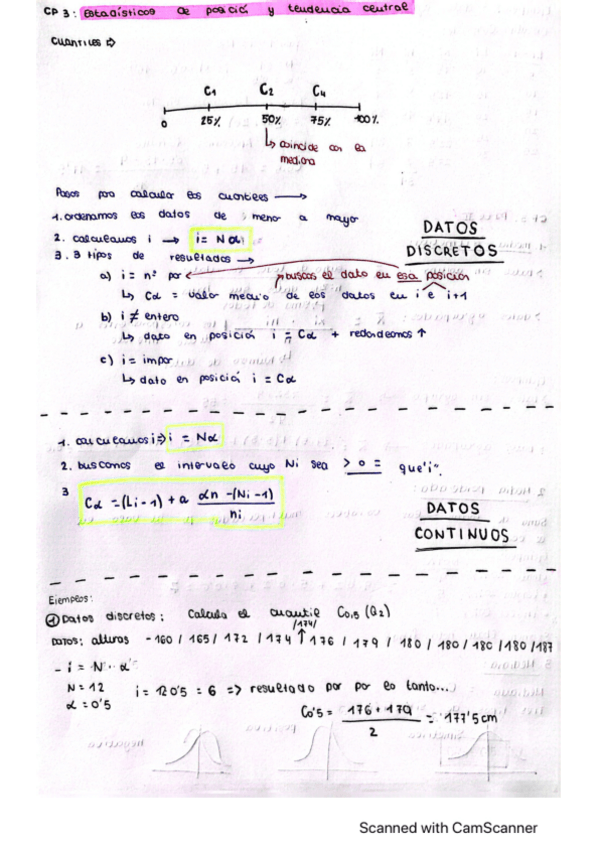 CP 3: Estadísticos de posició y tendencia central
Cuantiles ⇒
C1 C2 C4
0 25% 50% 75% 100%
↳ coincide con la
mediana
Pasos para calcular los cuantiles →
1. ordenamos los datos de menor a mayor
2. calculamos i → i = Nαi
3. 3 tipos de resultados →
DATOS
DISCRETOS
a) i = nº par ← buscas el dato en esa posición
↳ Cα = valor medio de los datos en i e i+1
b) i ≠ entero
↳ dato en posición i = Cα + redondeamos ↑
c) i = impar
↳ dato en posició i = Cα
1. calculamos i ⇒ i = Nα
2. buscamos el intervalo cuyo Ni sea > o = que "i".
3 Cα = (Li-1) + a αn-(Ni-1) / ni
DATOS
CONTINUOS
Ejemplos:
① Datos discretos: Calcula el cuantil C0,5 (Q2)
/174/
Datos: alturas - 160 / 165 / 172 / 174 ↑ 176 / 179 / 180 / 180 / 180 / 180 / 187
- i = N · α
N = 12 i = 12 0'5 = 6 => resultado par por lo tanto...
α = 0'5
C0'5 = 176 + 179 / 2 = 177'5 cm
Scanned with CamScanner